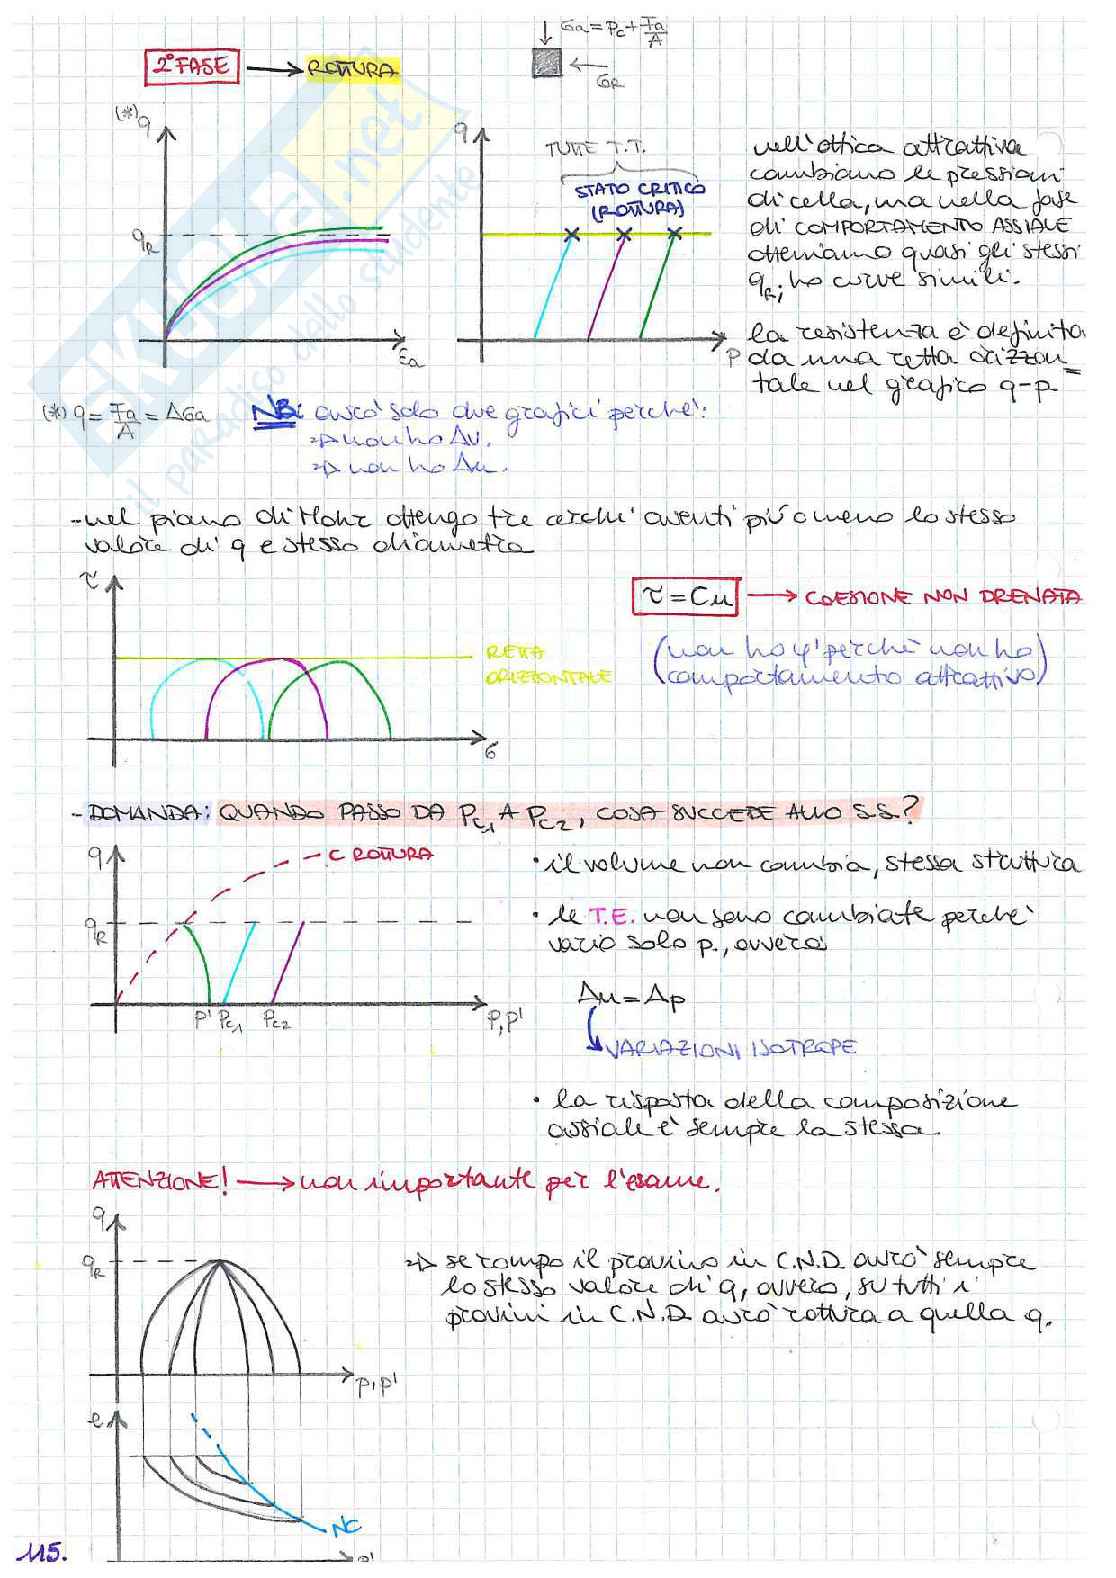 σa = Pc + Fa/A
2° FASE → ROTTURA
σR
(*) q
qR
εa
q
TUTTE T.T.
STATO CRITICO
(ROTTURA)
P
nell'ottica attrattiva
cambiano le pressioni
di cella, ma nella fase
di COMPORTAMENTO ASSIALE
otteniamo quasi gli stessi
qR; ho curve simili.
la resistenza è definita
da una retta orizzon=
tale nel grafico q-p.
(*) q = Fa/A = Δσa
NB: avrò solo due grafici perché:
⇒ non ho Δv.
⇒ non ho Δu.
- nel piano di Mohr ottengo tre cerchi aventi più o meno lo stesso
valore di q e stesso diametro
τ
RETTA
ORIZZONTALE
σ
τ = Cu → COESIONE NON DRENATA
(non ho φ' perché non ho
comportamento attrattivo)
- DOMANDA: QUANDO PASSO DA Pc1 A Pc2, COSA SUCCEDE ALLO S.S.?
q
C ROTTURA
qR
P' Pc1 Pc2 P, P'
• il volume non cambia, stessa struttura
• le T.E. non sono cambiate perché
vario solo p., ovvero:
Δu = Δp
VARIAZIONI ISOTROPE
• la risposta della composizione
assiale è sempre la stessa.
ATTENZIONE! → non importante per l'esame.
q
qR
P, P'
⇒ se rompo il provino in C.N.D. avrò sempre
lo stesso valore di q, ovvero, su tutti i
provini in C.N.D. avrò rottura a quella q.
e
NC
P'
115.
il paradiso dello studente